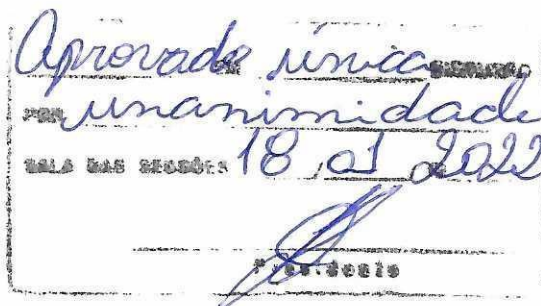 Aprovado em única discussão
por unanimidade
SALA DAS SESSÕES 18 / 01 / 2022
Presidente